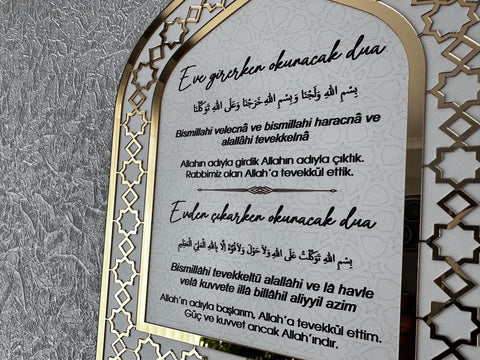 Eve girerken okunacak dua
بِسْمِ اللهِ وَلَجْنَا وَ بِسْمِ اللهِ خَرَجْنَا وَعَلَى اللهِ تَوَكَّلْنَا
Bismillahi velecnâ ve bismillahi haracnâ ve
alallâhi tevekkelnâ
Allahın adıyla girdik Allahın adıyla çıktık.
Rabbimiz olan Allah'a tevekkül ettik.
Evden çıkarken okunacak dua
بِسْمِ اللهِ تَوَكَّلْتُ عَلَى اللهِ وَلَا حَوْلَ وَلَا قُوَّةَ اِلَّا بِاللهِ الْعَلِيِّ الْعَظِيمِ
Bismillâhi tevekkeltü alallâhi ve lâ havle
velâ kuvvete illâ billâhil aliyyil azim
Allah'ın adıyla başlarım, Allah'a tevekkül ettim.
Güç ve kuvvet ancak Allah'ındır.